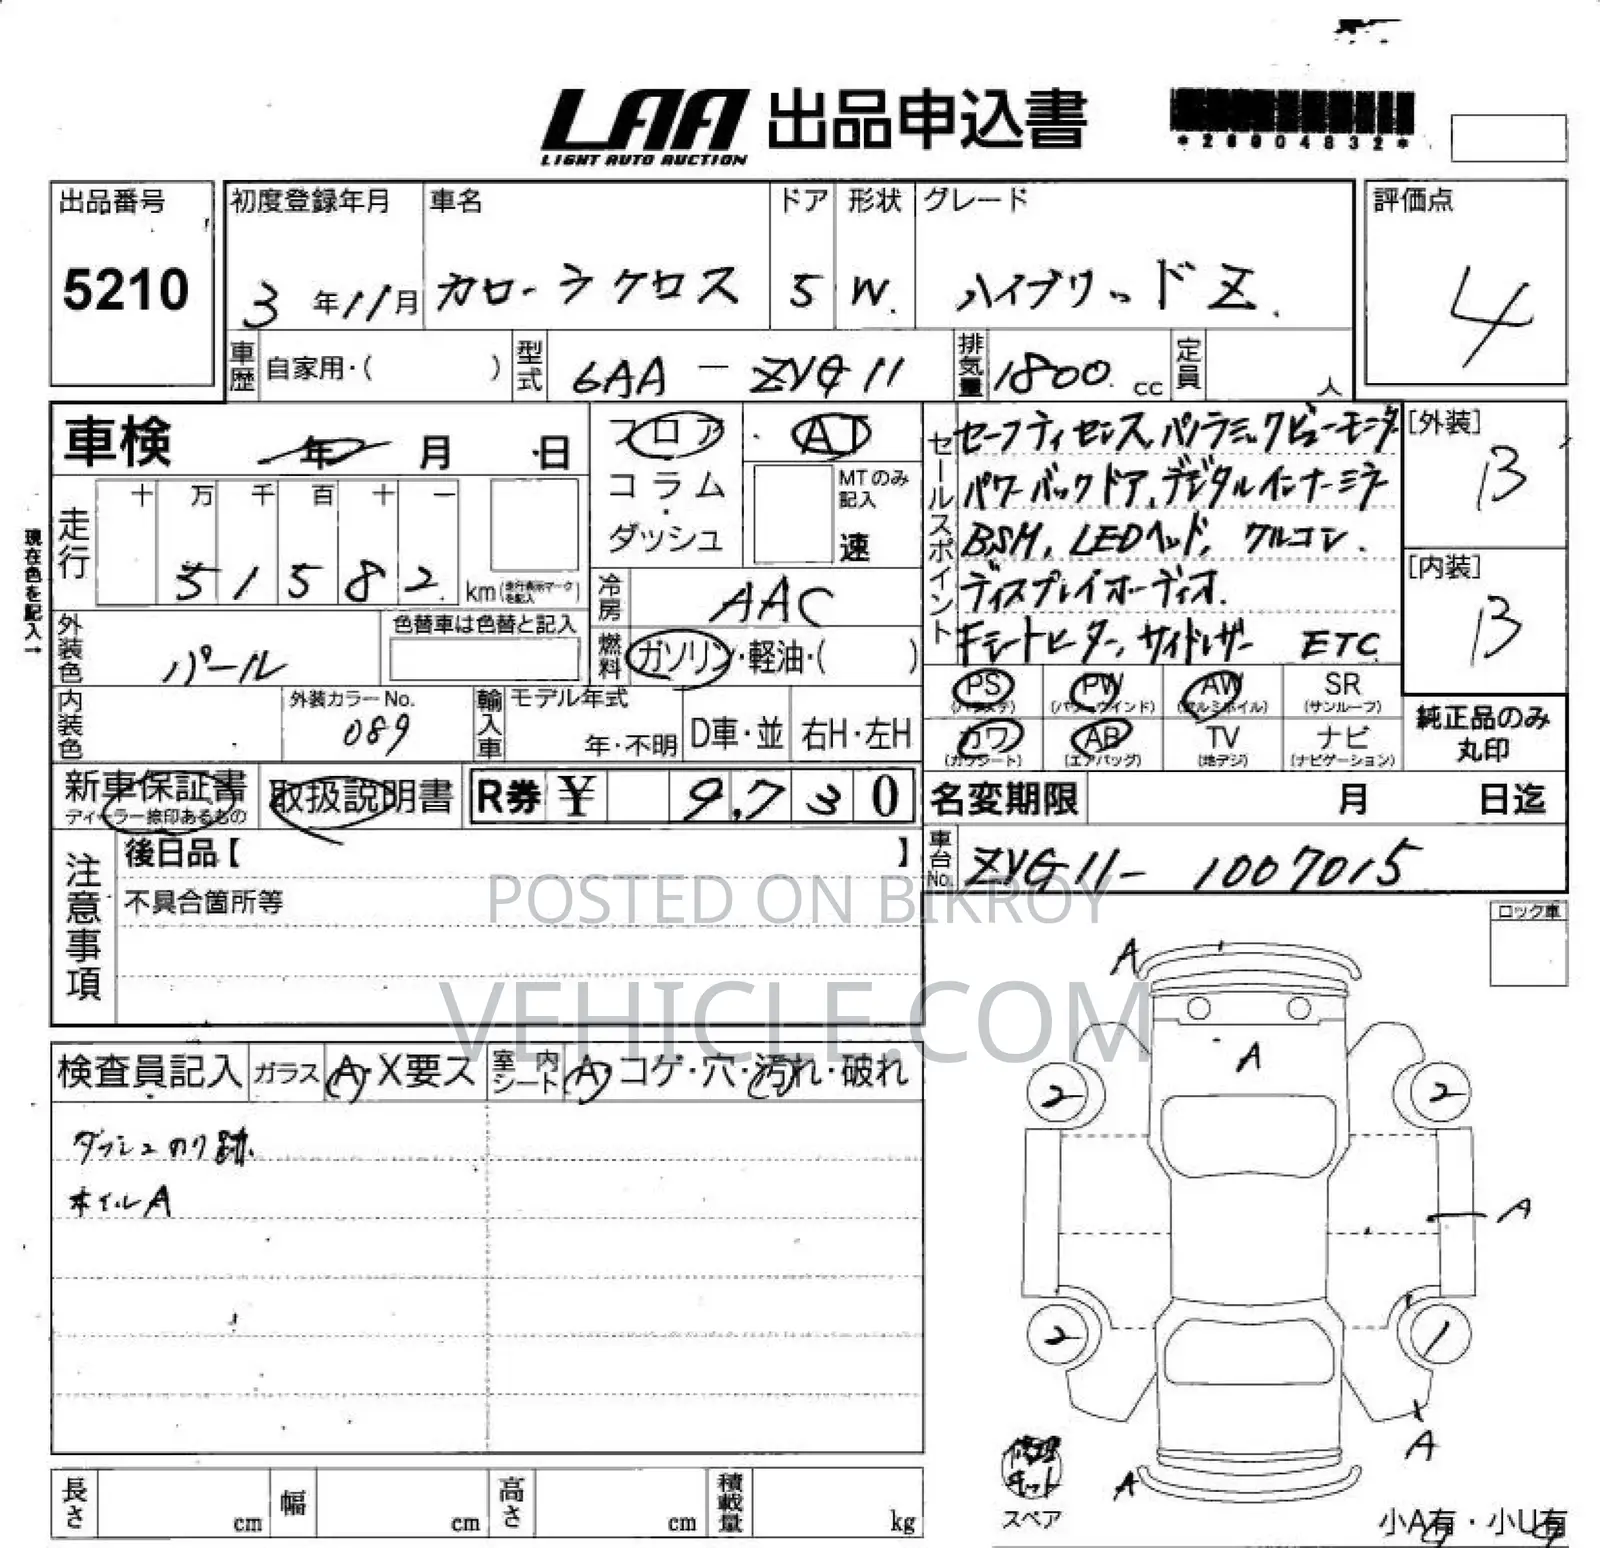 LAA 出品申込書
LIGHT AUTO AUCTION
*26904832*
出品番号
5210
初度登録年月 車名 ドア 形状 グレード
3年11月 カローラクロス 5 W. ハイブリッドZ.
評価点
4
車歴 自家用・( ) 型式 6AA-ZVG11 排気量 1800.cc 定員 人
車検 年 月 日
フロア・コラム・ダッシュ
AT
MTのみ記入
速
セールスポイント
セーフティセンス、パノラミックビューモニター
パワーバックドア、デジタルインナーミラー
BSM、LEDヘッド、クルコン.
ディスプレイオーディオ.
キシートヒーター、サイドレザー ETC
[外装]
B
[内装]
B
現在色を記入→
走行 十 万 千 百 十 一
51582 km(走行表示マークを記入)
冷房 AAC
燃料 ガソリン・軽油・( )
外装色 パール
色替車は色替と記入
内装色
外装カラーNo.
089
輸入車 モデル年式
年・不明 D車・並 右H・左H
PS (パワステ) PW (パワーウインド) AW (アルミホイル) SR (サンルーフ)
カワ (カワシート) AB (エアバッグ) TV (地デジ) ナビ (ナビゲーション)
純正品のみ丸印
新車保証書
ディーラー捺印あるもの
取扱説明書
R券 ¥ 9,730
名変期限 月 日迄
車台No. ZVG11-1007015
注意事項
後日品【 】
不具合箇所等
POSTED ON BIKROY
VEHICLE.COM
ロック車
検査員記入 ガラス A・X要ス 室内シート A・コゲ・穴・汚れ・破れ
ダッシュのり跡.
ホイルA
A
A
2 2
A
2 1
A
A
修理キット
スペア
小A有・小U有
長さ cm 幅 cm 高さ cm 積載量 kg